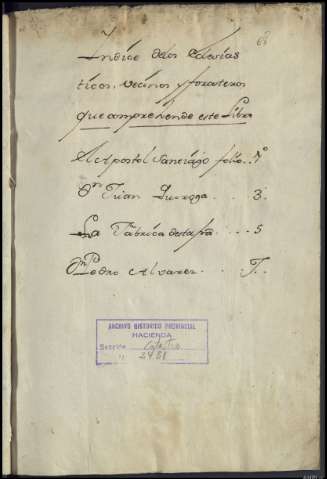 Indice delos Eclesias
ticos, vecinos y forasteros
que comprehende este Libro
Al Apostol Santiago folio . . 1º
Dn Juan Quiroga . . . 3.
La Fabrica desta fra . . . . 5
Dn Pedro Alvarez . . . . 7..
ARCHIVO HISTORICO PROVINCIAL
HACIENDA
Sección Catastro
2481